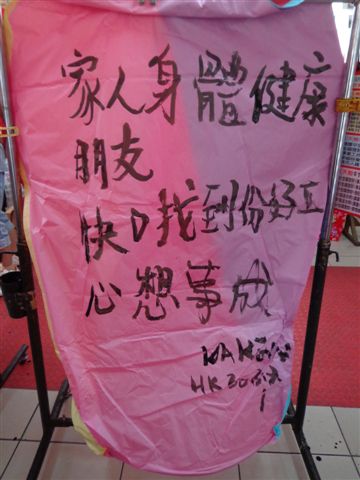 家人身體健康
朋友
快D找到份好工
心想事成
HK